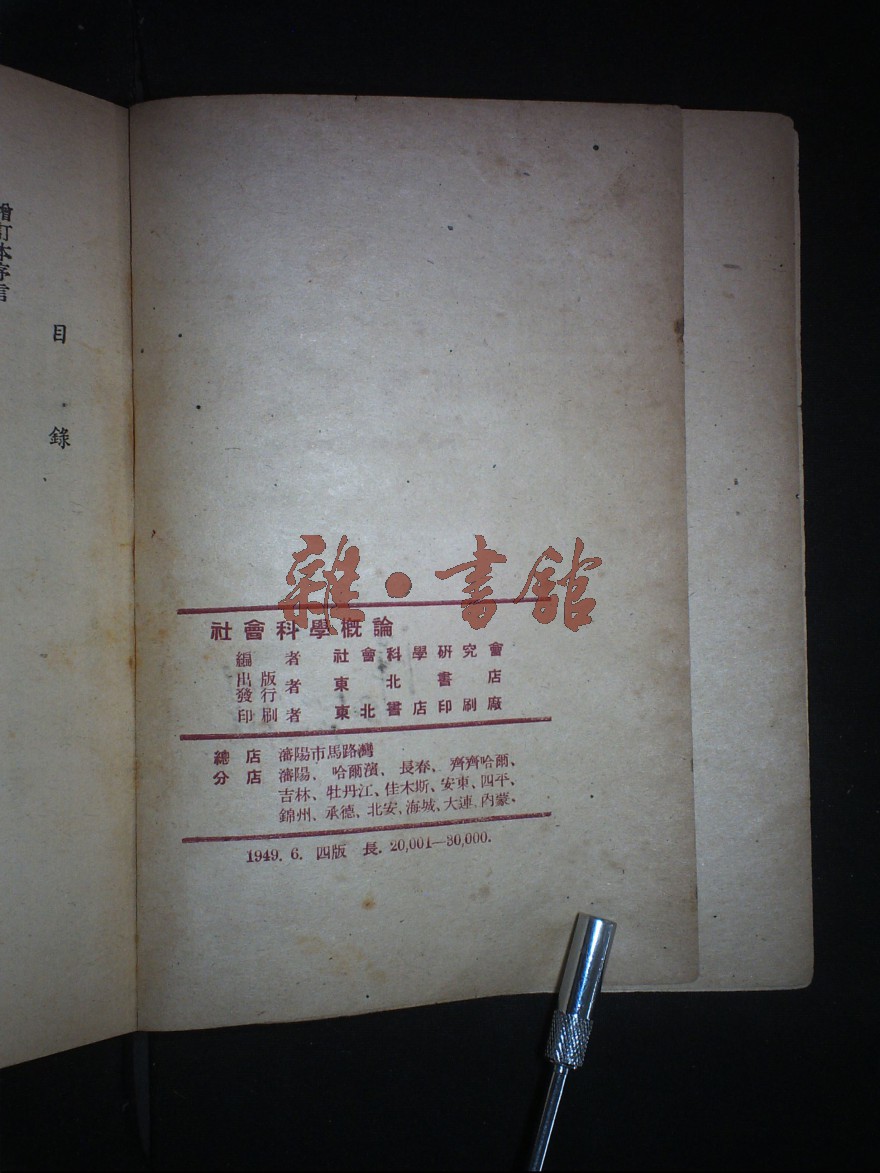 增訂本序言
目錄
雜·書館
社會科學概論
編者 社會科學研究會
出版
發行者 東北書店
印刷者 東北書店印刷廠
總店 瀋陽市馬路灣
分店 瀋陽、哈爾濱、長春、齊齊哈爾、
吉林、牡丹江、佳木斯、安東、四平、
錦州、承德、北安、海城、大連、內蒙、
1949. 6. 四版 長. 20,001—30,000.